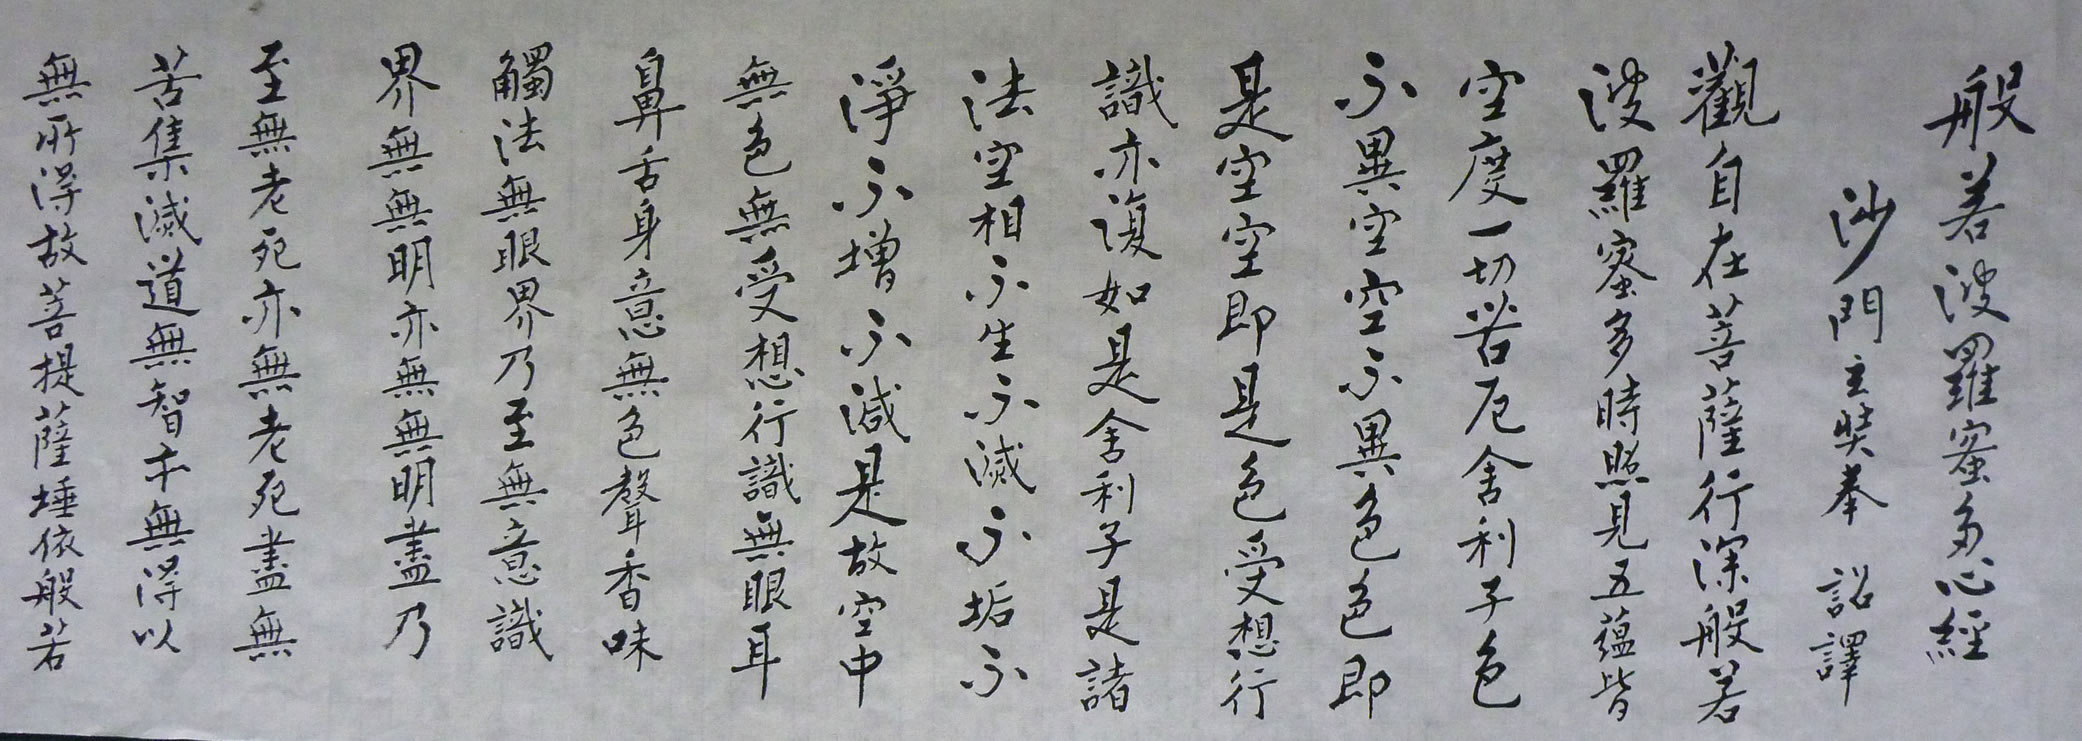 般若波羅蜜多心經
沙門玄奘奉 詔譯
觀自在菩薩行深般若
波羅蜜多時照見五蘊皆
空度一切苦厄舍利子色
不異空空不異色色即
是空空即是色受想行
識亦復如是舍利子是諸
法空相不生不滅不垢不
淨不增不減是故空中
無色無受想行識無眼耳
鼻舌身意無色聲香味
觸法無眼界乃至無意識
界無無明亦無無明盡乃
至無老死亦無老死盡無
苦集滅道無智亦無得以
無所得故菩提薩埵依般若